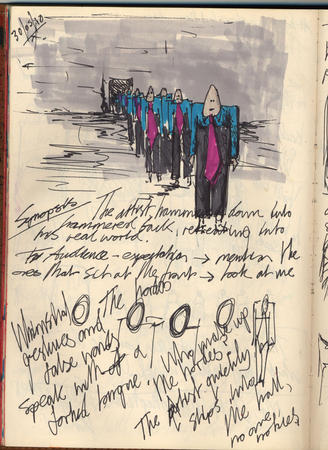 30/03/10
Synopsis The artist, hammered down into
hammered back, retreating into
his real world.
For Audience - expectation → mention the
ones that sit at the front → look at me
Whimsical The
gestures and
false words
speak with of a
forked tongue. Who make up
the
The Artist quietly
slips into
the hall,
no one
notices